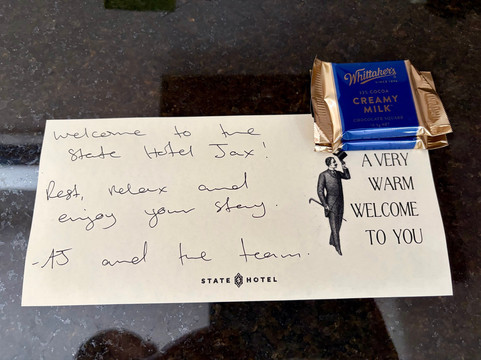 Welcome to the
State Hotel Jax!
Rest, relax and
enjoy your stay.
-AJ and the team.
STATE HOTEL
A VERY
WARM
WELCOME
TO YOU
Whittaker's
SINCE 1896
33% COCOA
CREAMY
MILK